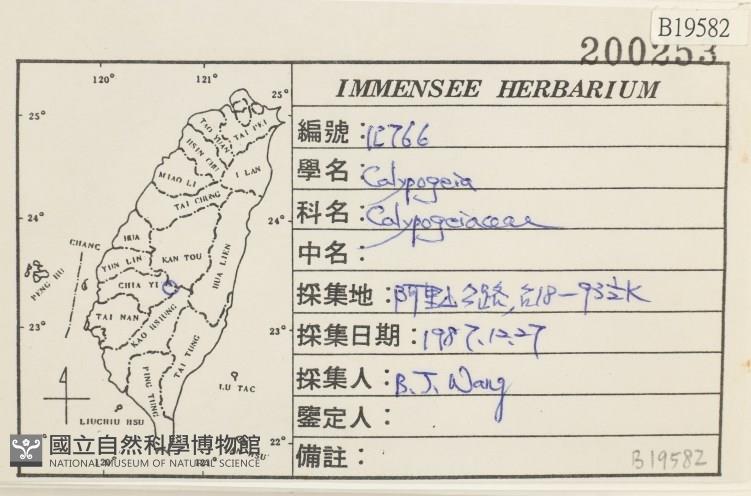 B19582
200253
IMMENSEE HERBARIUM
編號：12766
學名：Calypogeia
科名：Calypogeiaceae
中名：
採集地：阿里山公路,台18-93½K
採集日期：1987.12.27
採集人：B.J. Wang
鑒定人：
備註：
B19582
120°
121°
25°
25°
24°
24°
23°
23°
22°
120°
121°
TAO YUAN
TAI PEI
HSIN CHU
I LAN
MIAO LI
TAI CHUNG
CHANG HUA
NAN TOU
HUA LIEN
YUN LIN
CHIA YI
PENG HU
TAI NAN
KAO HSIUNG
TAI TUNG
PING TUNG
LIUCHIU HSU
國立自然科學博物館
NATIONAL MUSEUM OF NATURAL SCIENCE